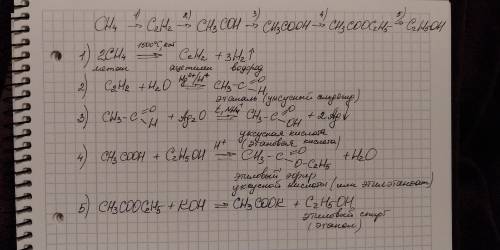 CH₄ →¹⁾ C₂H₂ →²⁾ CH₃COH →³⁾ CH₃COOH →⁴⁾ CH₃COOC₂H₅ →⁵⁾ C₂H₅OH
1) 2CH₄ ⇌ C₂H₂ + 3H₂↑
метан ацетилен водород
2) C₂H₂ + H₂O ⇌ CH₃-C=O H
Hg²⁺/H⁺
этаналь (уксусный альдегид)
3) CH₃-C=O H + Ag₂O ⇌ CH₃-C=O OH + 2Ag↓
уксусная кислота
(этановая кислота)
4) CH₃COOH + C₂H₅OH ⇌ CH₃-C=O O-C₂H₅ + H₂O
H⁺
этиловый эфир
уксусной кислоты (или этилэтаноат)
5) CH₃COOC₂H₅ + KOH → CH₃COOK + C₂H₅OH
этиловый спирт
(этанол)